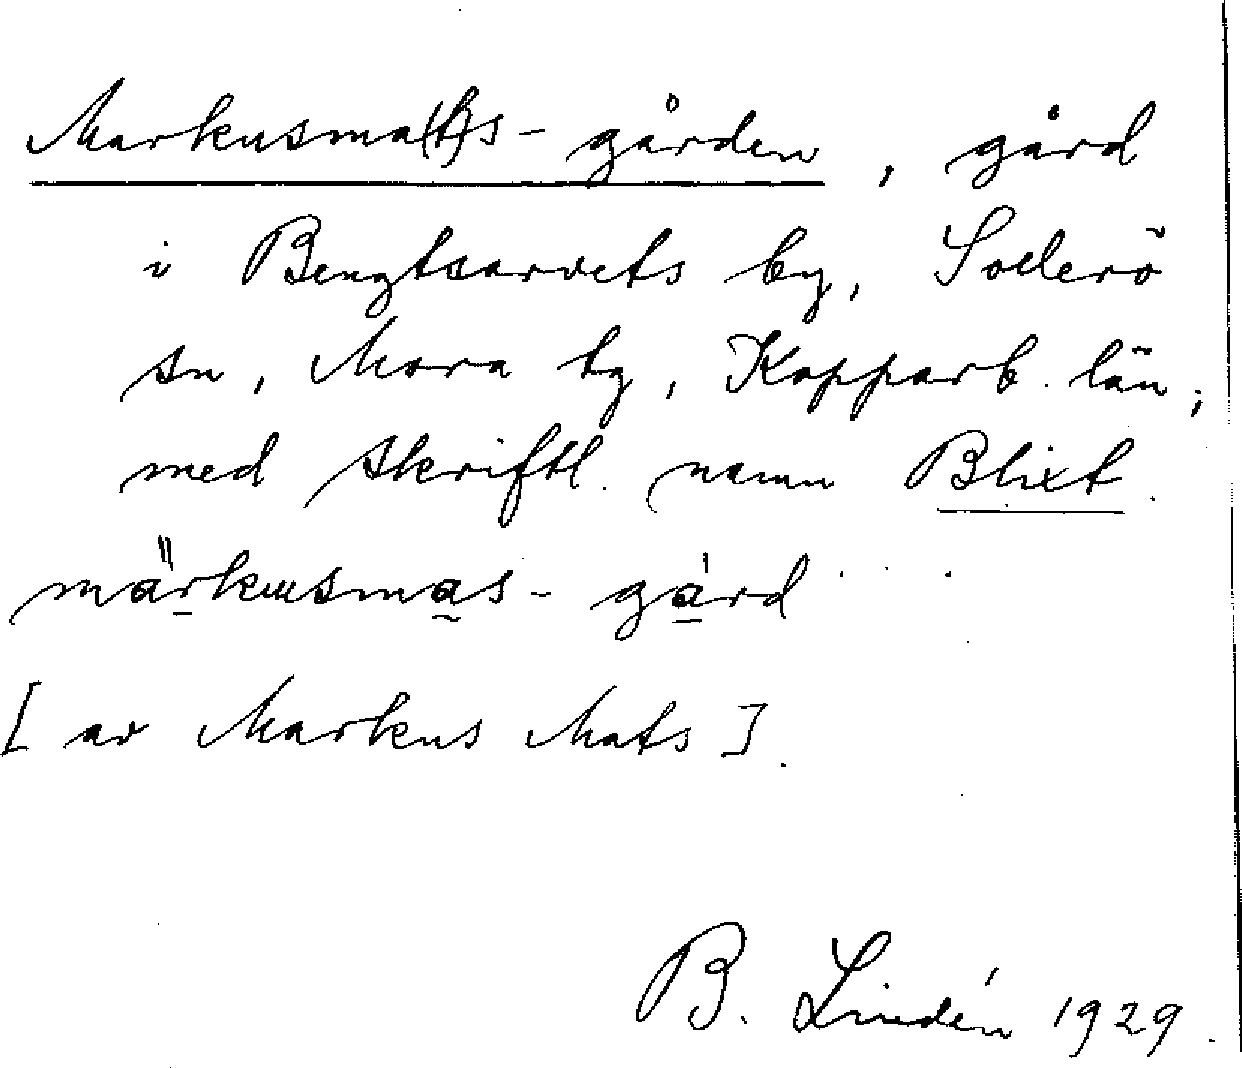 Markusma(t)s-gården, gård
i Bengtsarvets by, Sollerö
sn, Mora tg, Kopparb. län;
med skriftl. namn Blixt.
märkusmas-gård
[av Markus Mats].
B. Lindén 1929.